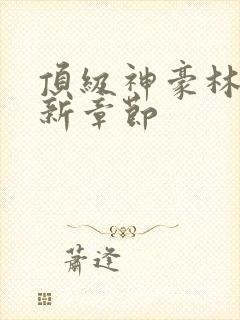 頂級神豪林
新章節
蕭逢